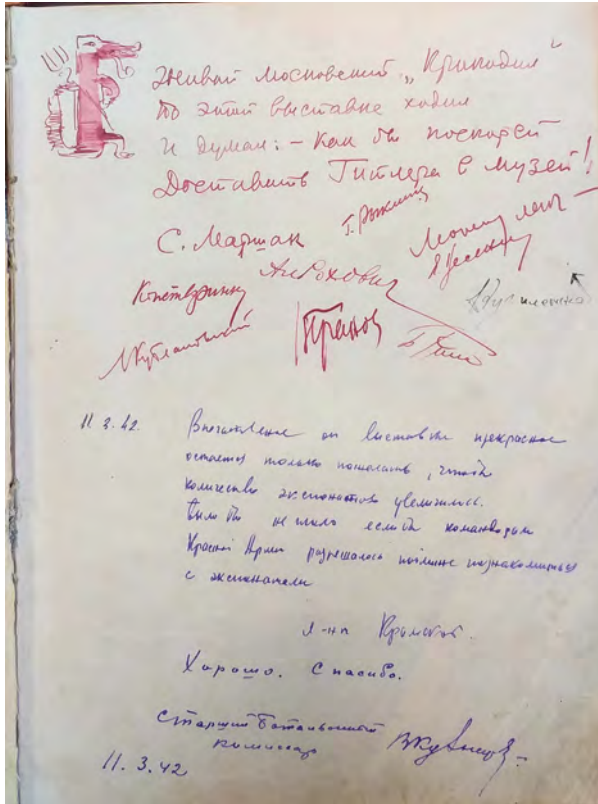 Живой московский „Крокодил“
По этой выставке ходил
И думал: – Как бы поскорей
Доставить Гитлера в музей!
С. Маршак
Г. Рыклин
Ан Рохович
Константин
11.3.42.
Впечатление от выставки прекрасное
остается только пожелать, чтобы
количество экспонатов увеличилось.
Было бы не плохо если бы командирам
Красной Армии разрешалось поближе познакомиться
с экспонатами
л-нт Крымской.
Хорошо. Спасибо.
Старший батальонный
комиссар
11.3.42